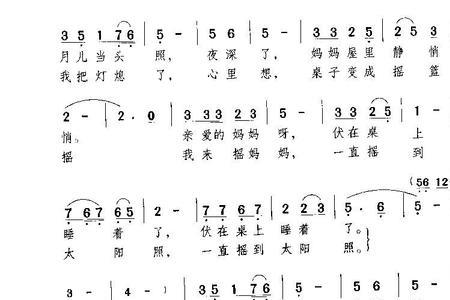 3 5 1 76 | 5 - | 5 6 5 | 5 - | 33 32 3 | 25 3
月儿当头 照, 夜深 了, 妈妈屋里 静悄
我把灯熄 了, 心里 想, 桌子变成 摇篮
2 - | 2. 0 | 33 33 23 | 5 - | 33 25 | 1 -
悄。 亲爱的妈妈 呀, 伏在桌 上
摇 我来摇妈 妈, 一直摇 到
(56 12
7 67 65 | 2 - | 77 67 | 2 - | 2 23 | 5. | 5 -
睡着 了, 伏在桌上 睡着 了。
太阳 照, 一直摇到 太阳 照。
3 - | 4 - | 35 1 76 | 5 - | 5 6